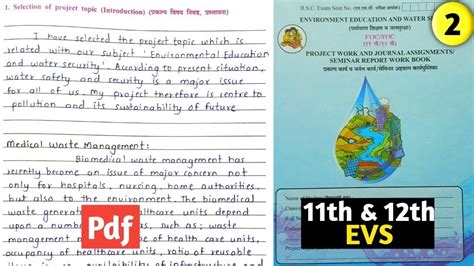 1. Selection of project topic (Introduction) (प्रकल्प विषय निवड, प्रस्तावना)
I have selected the project topic which is
related with our subject 'Environmental Education
and water security'. According to present situation,
water safety and security is a major issue
for all of us. My project therefore is centre to
pollution and its sustainability of future.
Medical Waste Management:
Biomedical waste management has
recently become an issue of major concern not
only for hospitals, nursing, home authorities,
but also to the environment. The biomedical
waste generated healthcare units depend
upon a number such as; waste
management of health care units,
occupancy of healthcare units, ratio of reusable
availability of infrastructure and
Pdf
H.S.C. Exam Seat No.
ENVIRONMENT EDUCATION AND WATER SE
FYJC/SYJC
PROJECT WORK AND JOURNAL ASSIGNMENTS/
SEMINAR REPORT WORK BOOK
2
11th & 12th
EVS